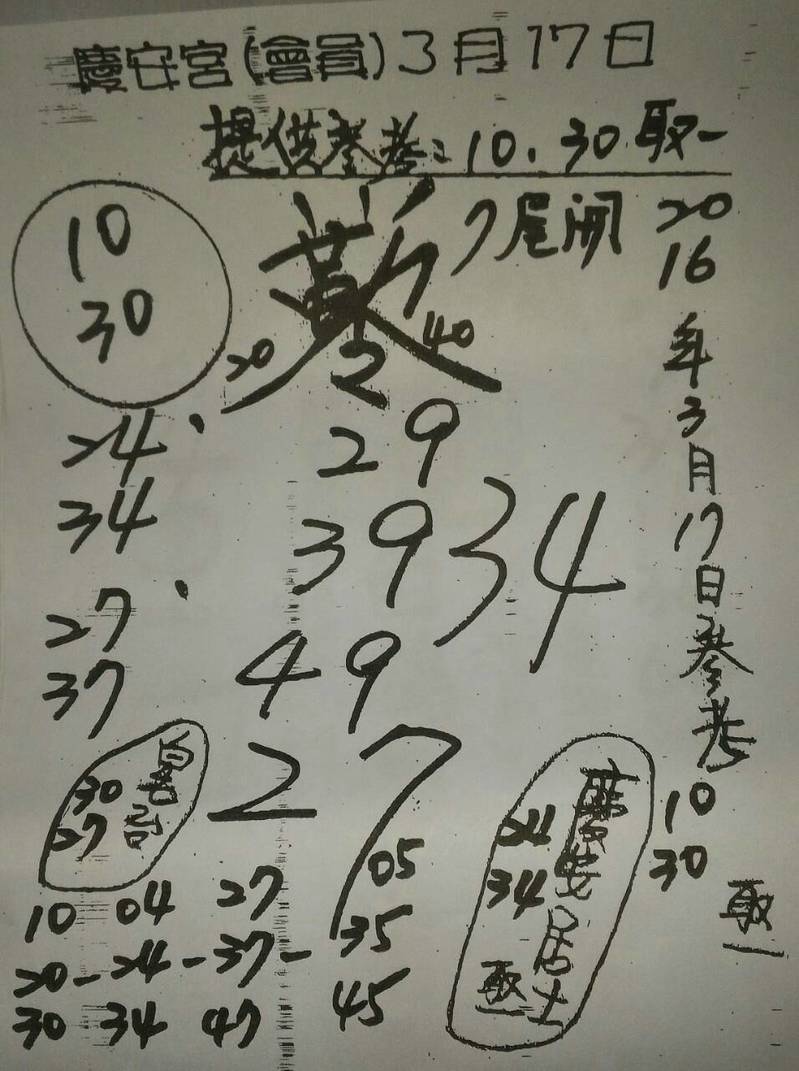 慶安宮(會員)3月17日
提供參考:10.30取一
7尾開
10
30
20
40
2
2016年3月17日參考
10
30
取一
24
34
29
39
34
27
37
49
27
30
27
慶安居士
24
34
取一
10 04 27 05
20-24-37-35
30 34 47 45